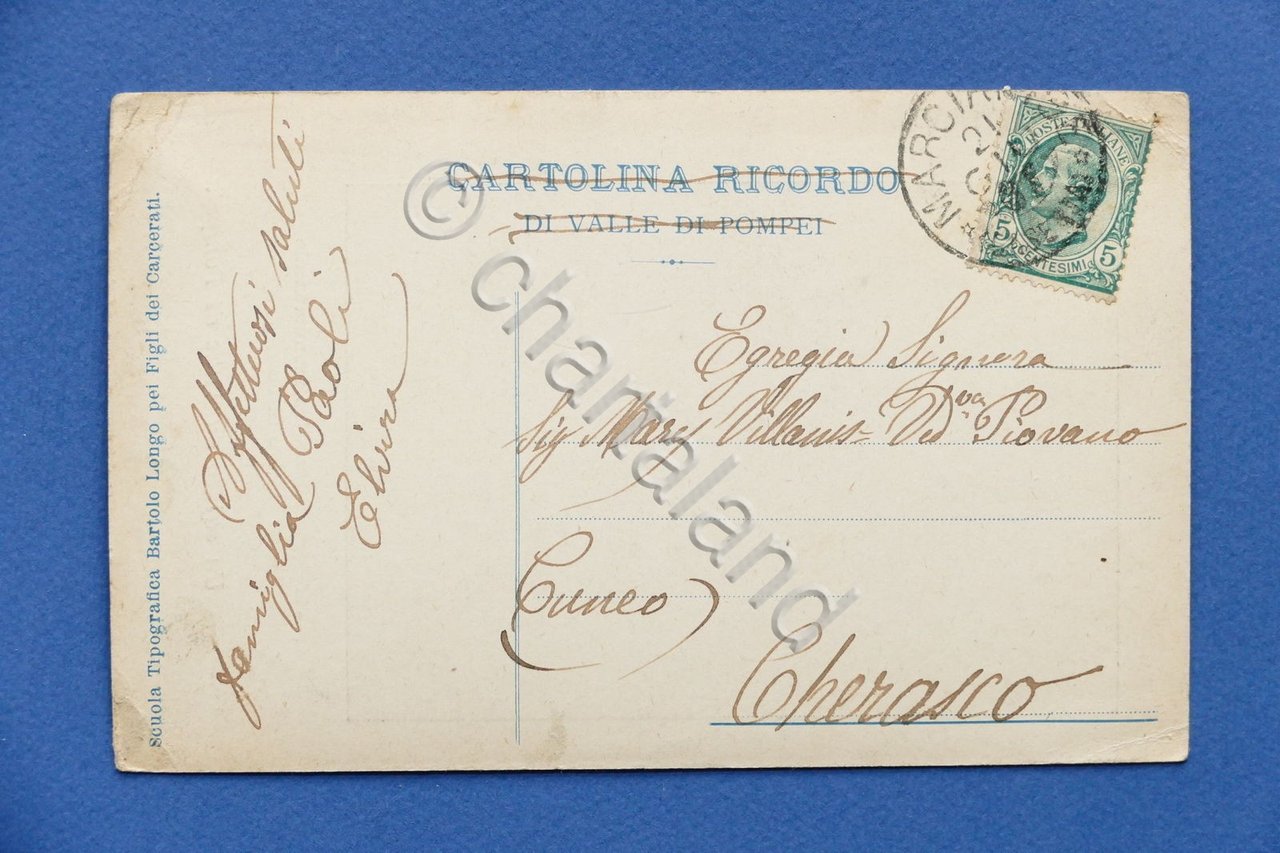 CARTOLINA RICORDO
DI VALLE DI POMPEI
POSTE ITALIANE
5 CENTESIMI 5
Scuola Tipografica Bartolo Longo pei Figli dei Carcerati.
Affettuosi saluti
famiglia Paoli
Elvira
Egregia Signora
Sig Mary Villanis Ved va Piovano
(Cuneo)
Cherasco
© chartaland